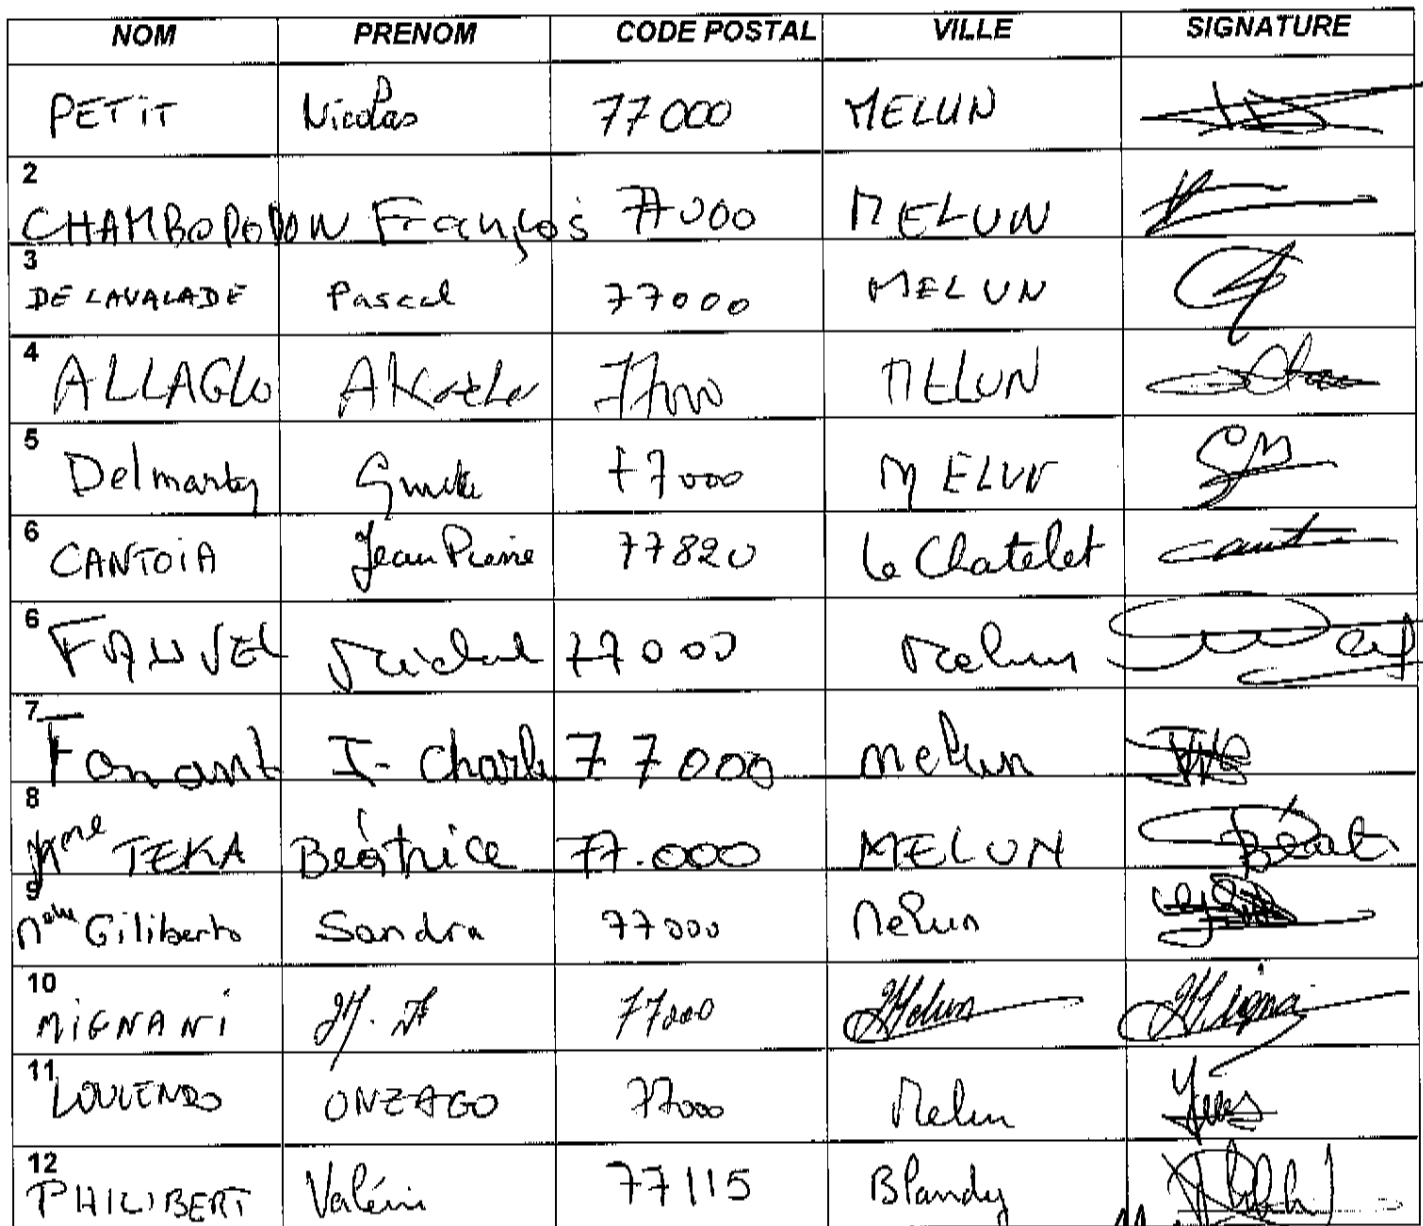 NOM PRENOM CODE POSTAL VILLE SIGNATURE
PETIT Nicolas 77000 MELUN
2
CHAMBODODON François 77000 MELUN
3
DE LAVALADE Pascal 77000 MELUN
4
ALLAGLO 77000 MELUN
5
Delmarty 77000 MELUN
6
CANTOIA Jean Pierre 77820 Le Chatelet
6
FAUVEL Michel 77000 Melun
7
J-Charl 77000 Melun
8
Mme TEKA Béatrice 77.000 MELUN Béat
9
Giliberto Sandra 77000 Melun
10
MIGNANI 77000 Melun
11
LOULENDO ONZAGO 77000 Melun Yves
12
PHILIBERT Valérie 77115 Blandy